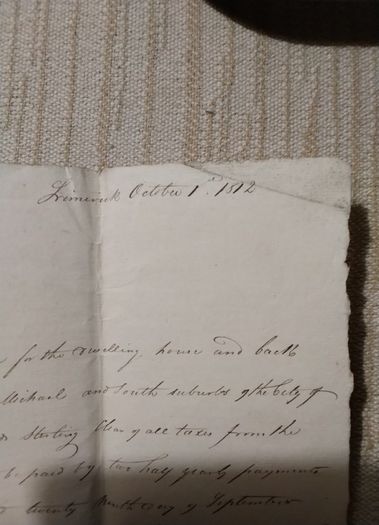 Limerick October 1st. 1812
for the dwelling house and back
Michael and South suburbs of the City of
Sterling Clear of all taxes from the
be paid by two half yearly payments
twenty Ninth day of September